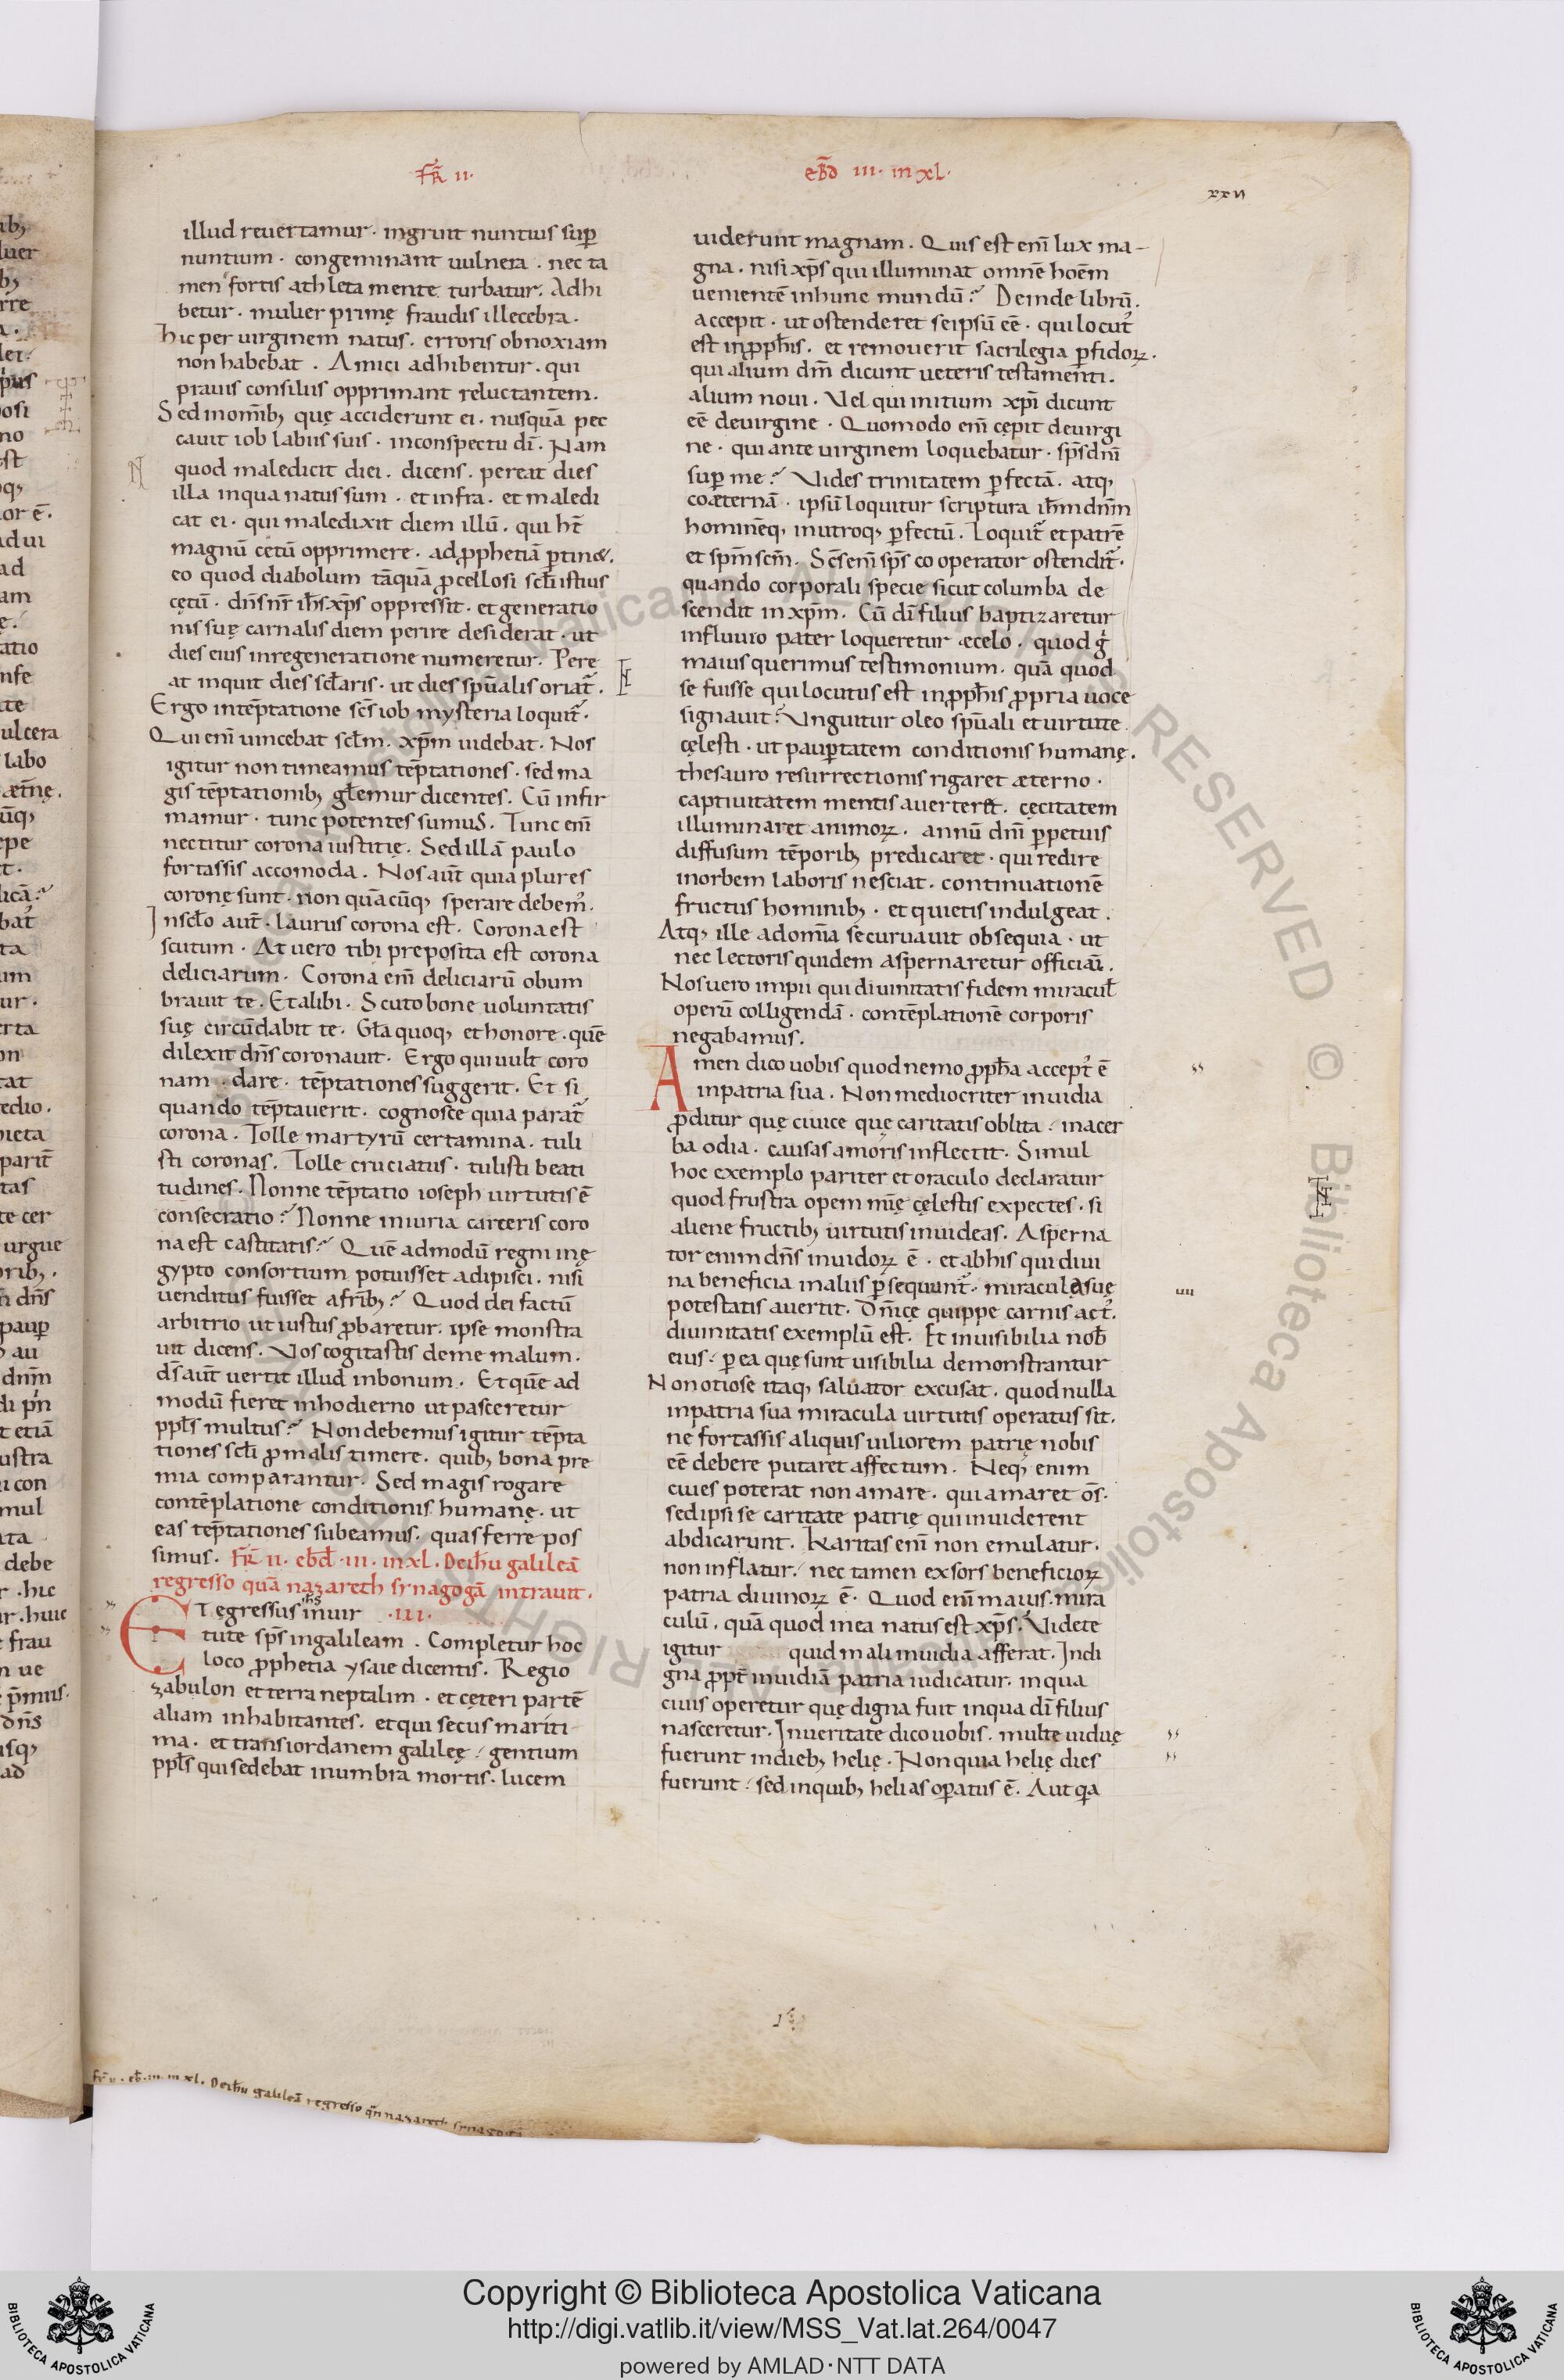 fr̄ ıı.
eb̄d ııı. in xl.
xxvı
illud reuertamur. ingruit nuntius sup̄
nuntium. congeminant uulnera. nec ta
men fortis athleta mente turbatur. Adhi
betur. mulier primę fraudis illecebra.
hic per uirginem natus. erroris obnoxiam
non habebat. Amici adhibentur. qui
prauis consiliis opprimant reluctantem.
Sed inomīb; quę acciderunt ei. nusquā pec
cauit iob labiis suis. inconspectu dī. Nam
quod maledicit diei. dicens. pereat dies
illa inqua natus sum. et infra. et maledi
cat ei. qui maledixit diem illū. qui ht̄
magnū cętū opprimere. ad ꝓphetiā ꝑtin&.
eo quod diabolum tāquā ꝓcellosi sctī istius
cętū. dn̄s nr̄ ih̄s xp̄s oppressit. et generatio
nis suę carnalis diem perire desiderat. ut
dies eius inregeneratione numeretur. Pere
at inquit dies sc̄laris. ut dies spūalis oriat̄.
Ergo intēptatione sc̄s iob mysteria loquit̄.
Qui enī uincebat sc̄lm. xp̄m uidebat. Nos
igitur non timeamus tēptationes. sed ma
gis tēptationib; gl̄emur dicentes. Cū infir
mamur. tunc potentes sumuS. Tunc enī
nectitur corona iustitię. Sed illā paulo
fortassis accomoda. Nos aūt quia plures
coronę sunt. non quācūq; sperare debem᾽.
Insc̄lo aūt. laurus corona est. Corona est
scutum. At uero tibi preposita est corona
deliciarum. Corona enī deliciarū obum
brauit te. Et alibi. Scuto bone uoluntatis
suę circūdabit te. Gl̄a quoq; et honore. quē
dilexit dn̄s coronauit. Ergo qui uult coro
nam. dare. tēptationes suggerit. Et si
quando tēptauerit. cognosce quia parat̄
corona. Tolle martyrū certamina. tuli
sti coronas. Tolle cruciatus. tulisti beati
tudines. Nonne tēptatio ioseph uirtutis ē
consecratio? Nonne iniuria carceris coro
na est castitatis? Quē admodū regni inę
gypto consortium potuisset adipisci. nisi
uenditus fuisset afrīb;? Quod dei factū
arbitrio ut iustus ꝓbaretur. ipse monstra
uit dicens. Vos cogitastis deme malum.
ds̄ aūt uertit illud inbonum. Et quē ad
modū fieret inhodierno ut pasceretur
ppl̄s multus? Non debemus igitur tēpta
tiones sc̄li ꝓ malis timere. quib; bona pre
mia comparantur. Sed magis rogare
contēplatione conditionis humanę. ut
eas tēptationes subeamus. quas ferre pos
simus. fr̄ ıı. eb̄d. ııı. in xl. De ih̄u galileā
regresso quā nazareth synagogā intrauit.
ET egressus ih̄s inuir ·ııı·
tute sp̄s ingalileam. Completur hoc
loco ꝓphetia ysaie dicentis. Regio
zabulon et terra neptalim. et cęteri partē
aliam inhabitantes. et qui secus mariti
ma. et transiordanem galilęę. gentium
ppl̄s qui sedebat inumbra mortis. lucem
uiderunt magnam. Quis est enī lux ma-
gna. nisi xp̄s qui illuminat omnē hoēm
uenientē inhunc mundū? Deinde librū.
accepit. ut ostenderet seipsū eē. qui locut᾽
est inꝓph̄is. et remouerit sacrilegia ꝑfidoꝝ.
qui alium dm̄ dicunt ueteris testamenti.
alium noui. Vel qui initium xp̄i dicunt
eē deuirgine. Quomodo enī cępit deuirgi
ne. qui ante uirginem loquebatur. sp̄s dnī
sup̄ me? Vides trinitatem ꝑfectā. atq;
coæternā. ipsū loquitur scriptura ih̄m dn̄m
hominēq; inutroq; ꝑfectū. Loquit̄ et patrē
et spm̄ scm̄. Sc̄s enī sp̄s cooperator ostendit̄.
quando corporali specie sicut columba de
scendit in xp̄m. Cū dī filius baptizaretur
influuio pater loqueretur ęcelo. quod g̓
maius querimus testimonium. quā quod
se fuisse qui locutus est inꝓph̄is ꝓpria uoce
signauit? Vnguitur oleo spūali et uirtute
cęlesti. ut pauꝑtatem conditionis humanę.
thesauro resurrectionis rigaret æterno.
captiuitatem mentis auerteret. cęcitatem
illuminaret animoꝝ. annū dnī ꝑpetuis
diffusum tēporib; predicaret. qui redire
inorbem laboris nesciat. continuationē
fructus hominib;. et quietis indulgeat.
Atq; ille adomīa se curuauit obsequia. ut
nec lectoris quidem aspernaretur officiū.
Nos uero impii qui diuinitatis fidem miracul̄
operū colligendā. contēplationē corporis
negabamus.
Amen dico uobis quod nemo ꝓph̄a accept᾽ ē
inpatria sua. Non mediocriter inuidia
ꝓditur quę ciuice que caritatis oblita. inacer
ba odia. causas amoris inflectit. Simul
hoc exemplo pariter et oraculo declaratur
quod frustra opem mīę cęlestis expectes. si
aliene fructib; uirtutis inuideas. Asperna
tor enim dn̄s inuidoꝝ ē. et abhis qui diui
na beneficia inaliis ꝑsequunt̄. miracula suę
potestatis auertit. Dn̄icę quippe carnis act᾽.
diuinitatis exemplū est. Et inuisibilia nob̄
eius. ꝑ ea quę sunt uisibilia demonstrantur
Non otiose itaq; saluator excusat. quod nulla
inpatria sua miracula uirtutis operatus sit.
ne fortassis aliquis uiliorem patrię nobis
eē debere putaret affectum. Neq; enim
ciues poterat non amare. qui amaret oōs.
sed ipsi se caritate patrię qui inuiderent
abdicarunt. Karitas enī non emulatur.
non inflatur. nec tamen exsors beneficioꝝ
patria diuinoꝝ ē. Quod enī maius. mira
culū. quā quod inea natus est xp̄s. Videte
igitur quid mali inuidia afferat. Indi
gna ꝓpt̄ inuidiā patria iudicatur. inqua
ciuis operetur quę digna fuit inqua dī filius
nasceretur. Inueritate dico uobis. multe uiduę
fuerunt indieb; helię. Non quia helię dies
fuerunt. sed inquib; helias oꝑatus ē. Aut qa
Copyright © Biblioteca Apostolica Vaticana
http://digi.vatlib.it/view/MSS_Vat.lat.264/0047
powered by AMLAD·NTT DATA